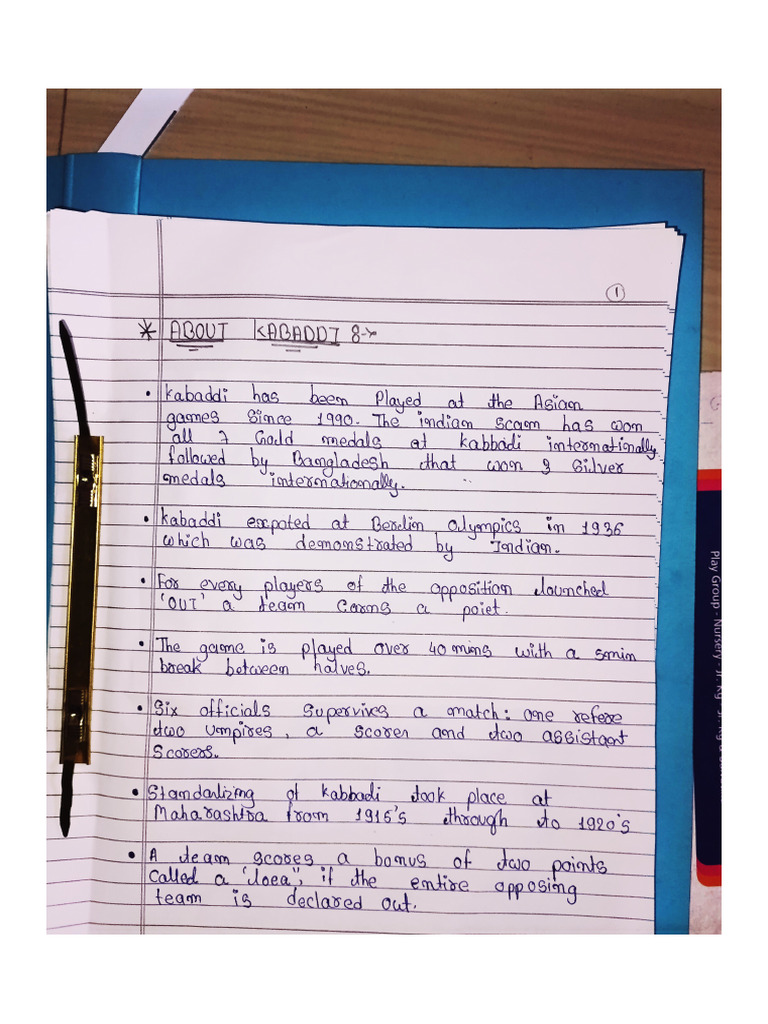 1
* ABOUT KABADDI :-
• Kabaddi has been Played at the Asian
games Since 1990. The indian scam has won
all 7 Gold medals at kabbadi internationally
followed by Bangladesh that won 3 Silver
medals internationally.
• Kabaddi expoted at Berdlin olympics in 1936
which was demonstrated by Indian.
• For every players of the opposition launched
'OUT' a team Carms a poiet.
• The game is played over 40 mins with a 5min
break between halves.
• Six officials Supervives a match: one refere
two umpires, a scorer and two assistant
Scorers.
• Standarlizing of kabbadi took place at
Maharashtra from 1915's through to 1920's
• A team scores a bonus of two points
Called a "loea", if the entire opposing
team is declared out.
Play Group - Nursery - Jr. Kg